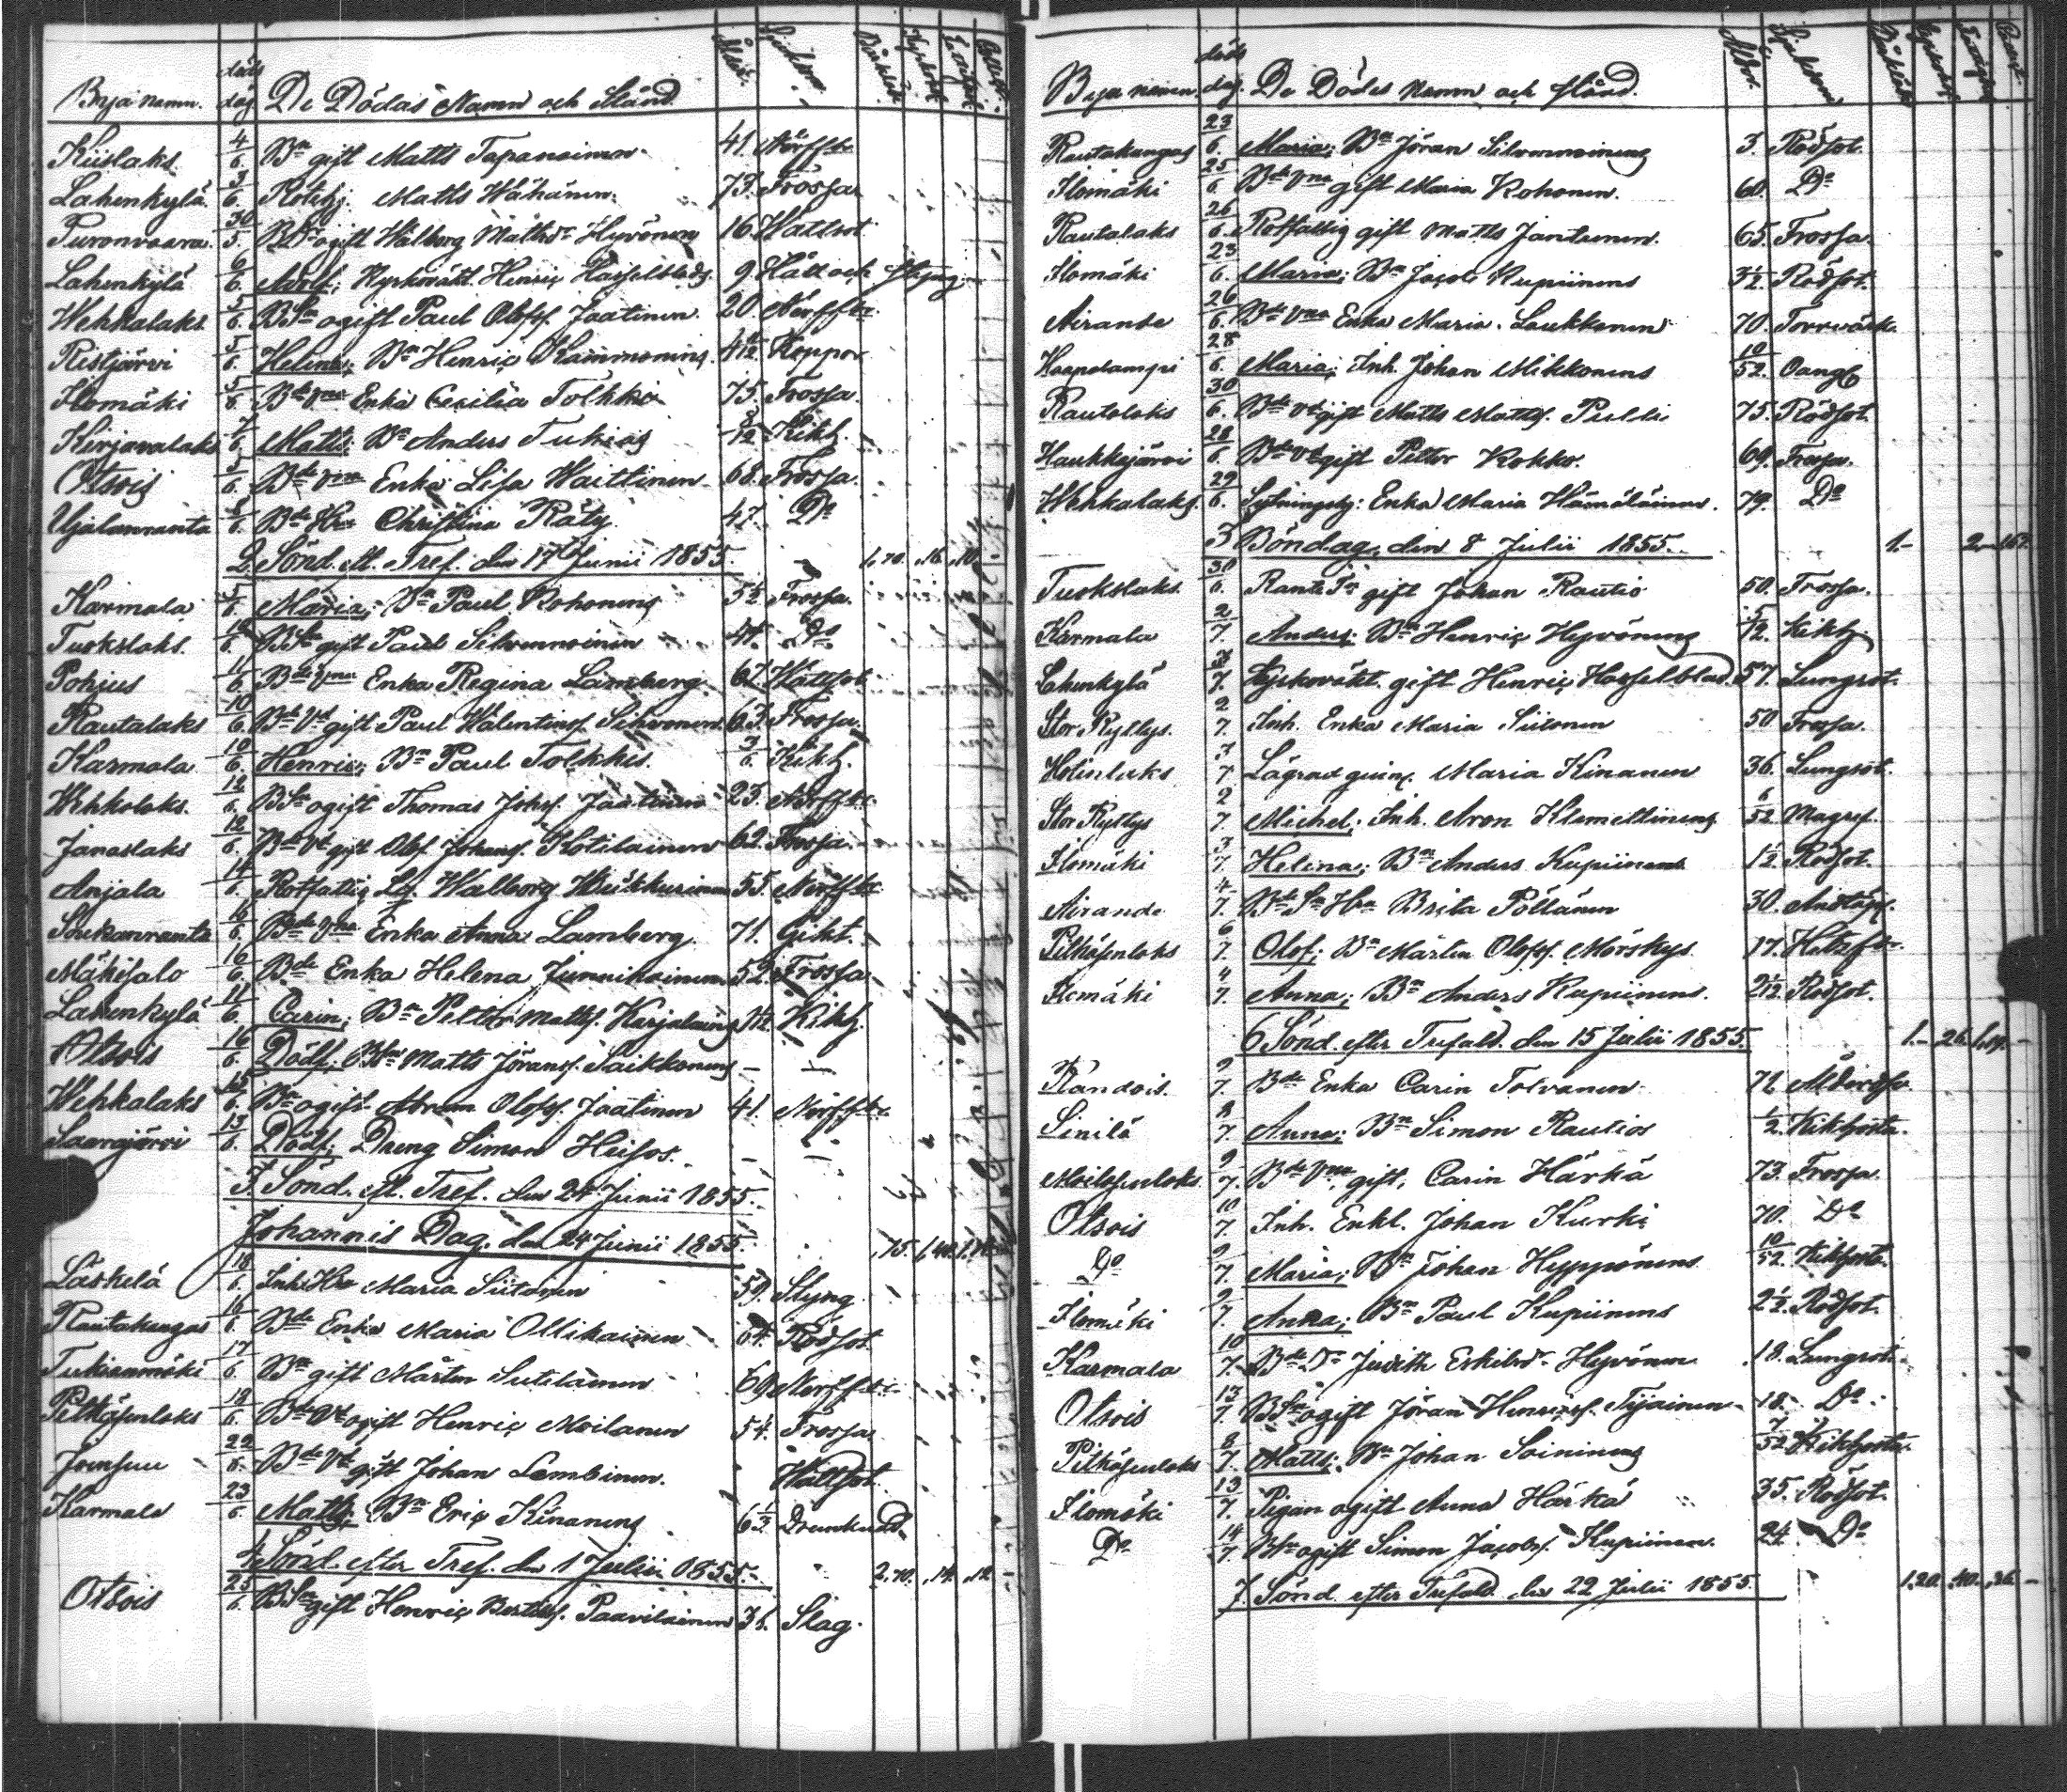 Bya namn. döds dag. De Dödas Namn och Stånd. Ålder. Sjukdom
Kiislaks. 4/6. Bn gift Matts Tapanainen 41. Nerffbr
Lahenkylä 3/6. Rotehj. Matts Hähänen. 73. Frossa
Puronvaara 30/5. BDr ogift Walborg Mattsdr Hyvönen 16. Wattsot
Lahenkylä 6/6. Adolf; Kyrkovakt. Henric Hasselblads. 9. Håll och styng.
Wehkalaks 5/6. BSn ogift Paul Olofss. Jaatinen. 20. Nerffbr.
Ristjärvi 5/6. Helena; Bn Henric 4/12. Koppor
Ilomäki 5/6. Bde Vna Enka Cecilia Tolkki 75. Frossa.
Kirjavalaks 7/6. Matts; Bn Anders Tukias /12 Kikh.
Otsois 5/6. Bde Vna Enka Lisa Waittinen 68. Frossa.
Ujalanranta 8/6. Bde Hu Christina Räty. 47. Do
2. Sönd. ef. Tref. den 17 Junii 1855. 1,70. ,16. ,10. -
Karmala 5/6. Maria; Bn Paul Kohonens 5½ Frossa.
Tuokslaks. /6. BSn gift Paul Silvennoinen 44. Do
Pohjus 11/6. Bde Vna Enka Regina Lamberg. 67. Wattsot
Rautalaks 10/6. Bde Vd gift Paul Walentinss. Sihvonen. 63. Frossa.
Karmala 10/6. Henric; Bn Paul Tolkkis. Kikh.
Wehkalaks. 12/6. BSn ogift Thomas Johss. Jaatinen 23. Nerffbr.
Janaslaks 12/6. Bde Vd gift Olof Johanss. Kotilainen 62. Frossa.
Anjala 14/6. Rotfattig Lg. Walborg 55. Nerffbr
Soukanranta 16/6. Bde Vna Enka Anna Lamberg. 71. Gikt.
Mäkisalo 16/6. Bde Enka Helena Junnikainen 52. Frossa.
Lahenkylä 11/6. Carin; Bn Petter Mattss. Karjalains Kikh.
Otsois 16/6. Dödf; BSn Matts Jöranss. Saikkonens - -
Wehkalaks 15/6. Bn ogift Abram Olofss. Jaatinen 41. Nerffbr.
Saarajärvi 13/6. Dödf; Dreng Simon Heisos. - -
3. Sönd. ef. Tref. den 24 Junii 1855.
Johannis Dag. den 24 Junii 1855.
Läskelä 18/6. Inh. Hu Maria Siitonen 59. Styng
Rautakangas 16/6. Bde Enka Maria Ollikainen 64. Rödsot
Tukiamäki 17/6. Bn gift Mårten Sutelainen 69. Nerffbr.
Pitkäsenlaks 18/6. Bde Vd ogift Henric Moilanen 54. Frossa.
Joensuu 22/6. Bde Vd gift Johan Lambinen. Wattsot.
Karmala 23/6. Matts; Bn Eric Kinanens 6⅓ Drunknad
4 Sönd. efter Tref. den 1 Julii 1855. 2,70. ,14. ,12. -
Otsois 25/6. BSn gift Henric Bertelss. Paavilainen 36. Slag.
Bya namn. döds dag. De Dödes Namn och stånd. Ålder. Sjukdom
Rautakangas 23/6. Maria; Bn Jöran Silvennoinens 3. Rödsot.
Ilomäki 25/6. Bde Vna gift Maria Kohonen. 60. Do
Rautalaks 26/6. Rotfattig gift Matts Jantunen. 65. Frossa.
Ilomäki 23/6. Maria; Bn Jacob Kupiinens 3½. Rödsot.
Airande 26/6. Bde Vna Enka Maria Loukkanen 70. Torrvärk.
Haapalampi 28/6. Maria; Inh. Johan Mikkonens 10/52. Oangf
Rautalaks 30/6. Bde Vd gift Matts Mattss. Pulli 75. Rödsot.
Haukkajärvi 28/6. Bde Vd gift Petter Kokko. 69. Frossa.
Wehkalaks. 29/6. Sytningshj: Enka Maria Hämäläinen. 79. Do
3 Böndag, den 8 Julii 1855. 1.-
Tuokslaks. 30/6. gift Johan Rautio 50. Frossa.
Karmala 2/7. Anders; Bn Henric Hyvönens 5/12. Kikh.
Lahenkylä 3/7. Kyrkovakt. gift Henric Hasselblad. 57. Lungsot.
Stor Kyllys. 2/7. Inh. Enka Maria Siitonen 50 Frossa.
Hotinlaks 7/7 Lägrad quinf. Maria Kinanen 36. Lungsot.
Stor Kyllys 2/7. Michel; Inh. Aron Klemettinens 6/52 Magref.
Ilomäki 3/7 Helena; Bn Anders Kupiinens 1½ Rödsot.
Airande 4/7. Bde Sn Hu Brita Pöllänen 30. Andtäpp.
Pitkäsenlaks 6/7. Olof; Bn Mårten Olofss. Mörskys 17. Hetsfbr.
Ilomäki 4/7. Anna; Bn Anders Kupiinens. 2½. Rödsot.
6 Sönd. efter Trefald. den 15 Julii 1855. 1.- 26.
Kandois. 9/7. Bde Enka Carin Tolvanen 72 Ålderdom
Sinilä 8/7. Anna; Bn Simon Rautios ½ Kikhosta.
Moilasenlaks 9/7. Bde Vna gift, Carin Härkä 73. Frossa.
Otsois 10/7. Inh. Enkl. Johan Kurki 70. Do
Do 9/7. Maria; Bn Johan Hyppönens 10/52. Kikhosta.
Ilomäki 9/7. Anna; Bn Paul Kupiinens 2½. Rödsot.
Karmala 10/7. Bde Dr Judith Eskilsdr Hyvönen 18. Lungsot.
Otsois 13/7. BSn ogift Jöran Henricss. Tijainen 18. Do
Pitkäsenlaks 8/7. Matts; Bn Johan Soininens 7/52 Kikhosta
Ilomäki 13/7. Pigan ogift Anna Härkä 35. Rödsot.
Do 14/7 BSn ogift Simon Jacobss. Kupiinen. 24. Do
7. Sönd. efter Trefald. den 22 Julii 1855. 1,20. ,40. ,36. -